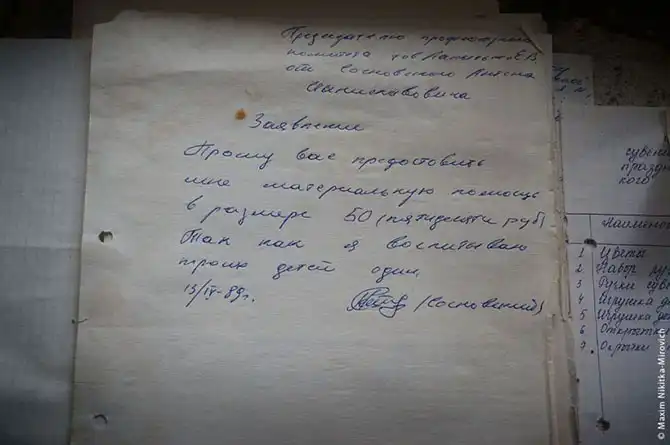 Председателю профсоюзного
комитета тов
от Сосновского Антона
Станиславовича
Заявление
Прошу вас предоставить
мне материальную помощь
в размере 50 (пятидесяти руб)
Так как я воспитываю
троих детей один.
13/IV-89г. (Сосновский)
сувени
праздн
кого
Наимено
1 Цветы
2 Набор ру
3 Ручки суве
4 Игрушка де
5 Игрушка де
6 Открытки
7.
© Maxim Nikitka-Mirovich